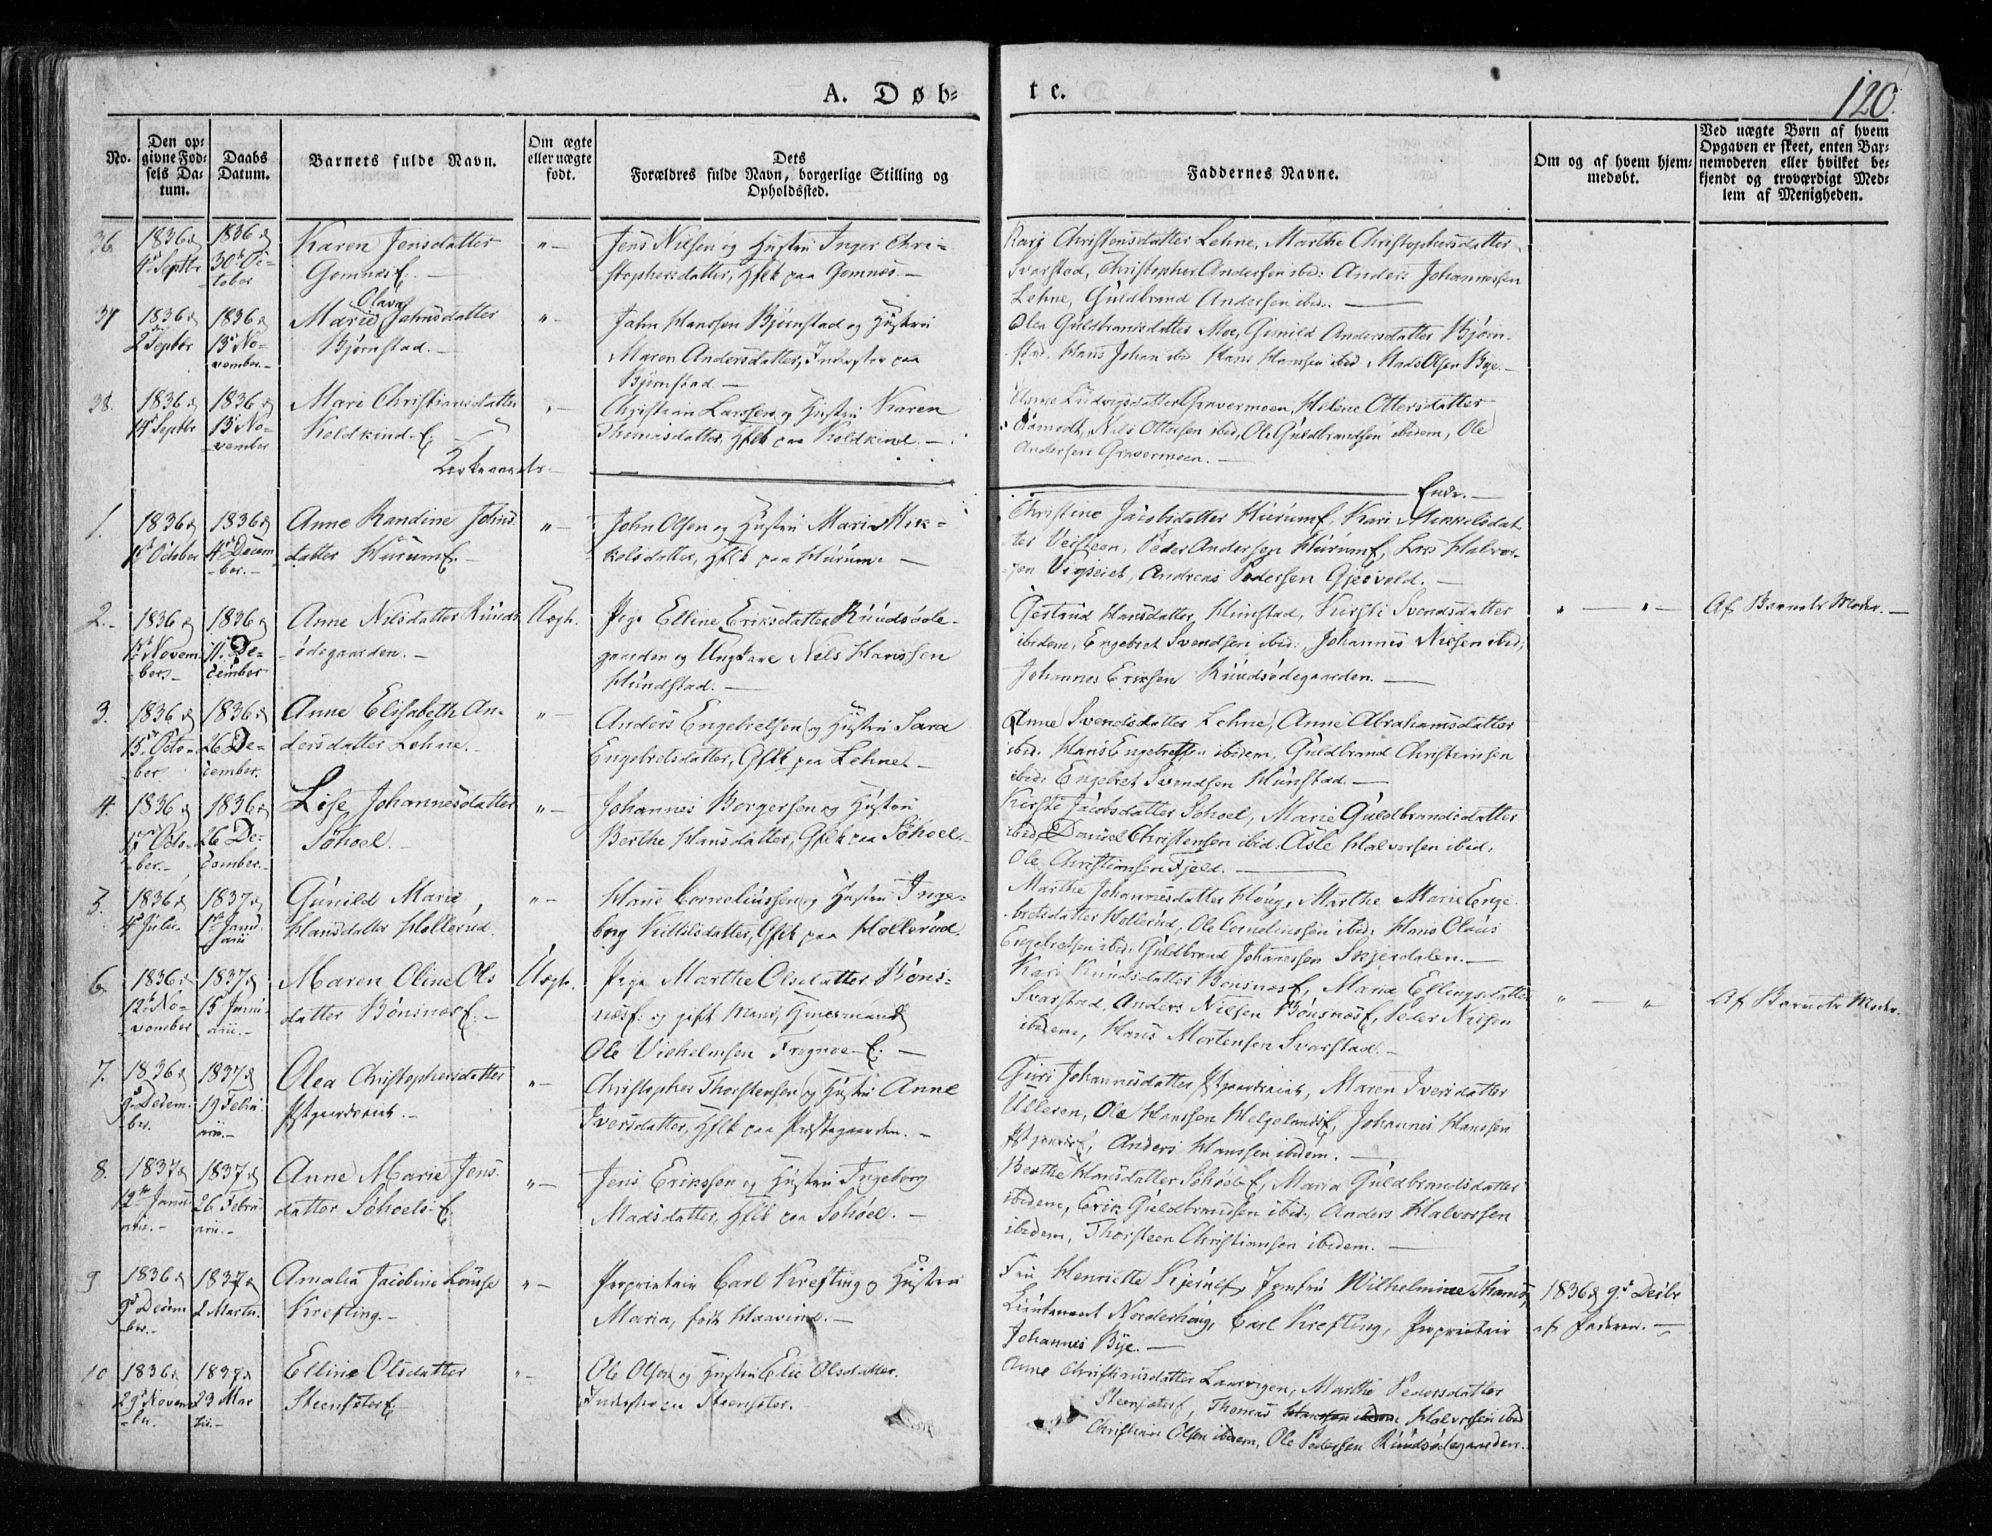 A. Døb-
te.
120.
No.
Den op-
givne Fød-
sels Da-
tum.
Daabs
Datum.
Barnets fulde Navn.
Om ægte
eller uægte
født.
Dets
Forældres fulde Navn, borgerlige Stilling og
Opholdssted.
Faddernes Navne.
Om og af hvem hjem-
medøbt.
Ved uægte Børn af hvem
Opgaven er skeet, enten Bar-
nemoderen eller hvilket be-
kjendt og troværdigt Med-
lem af Menigheden.
36
1836
4 Septbr
1836
30 Oc-
tober
Karen Jensdatter
Gomnæs
"–
Jens Nilsen og Hustru Inger Chri-
stophersdatter, Hflk paa Gomnæs.–
Kari Christensdatter Lehne, Marthe Christophersdatter
Svarstad, Christopher Andersen ibid: Anders Johannessen
Lehne, Guldbrand Andersen ibid. –
37
1836
2 Septbr
1836
13 No-
vember.–
Olava
Marie Jahnsdatter
Bjørnstad.–
"–
Jahn Hanssen Bjørnstad og Hustru
Maren Andersdatter, Inderster paa
Bjørnstad –
Olea Guldbransdatter Moe, Gunild Andersdatter Bjørn-
stad. Hans Johan ibid Hans Hansen ibid Mads Olsen Bye.–
38.
1836
14 Septbr
1836
13 No-
vember
Mari Christiansdatter
Koldkind
"–
Christian Larssen og Hustru Karen
Thomasdatter, Hflk paa Koldkind.–
Ludvigsdatter Gravermoen, Helene Ottersdatter
Aamodt, Nils Ottersen ibid, Ole Guldbrandsen ibidem, Ole
Andersen Gravermoen. –
1.
1836
October
1836
4 Decem-
ber.–
Anne Randine Johns-
datter Hurum
"–
John Olsen og Hustru Mari Mik-
kelsdatter, Hflk paa Hurum. –
Enke.–
Christine Jacobsdatter Hurum, Kari Mikkelsdat-
ter Veisteen, Peder Andersen Hurum, Lars Halvor-
sen, Andreas Pedersen Gjesvold. –
2.–
1836
Novem-
ber.–
1836
11 De-
cember
Anne Nilsdatter Ruuds-
ødegaarden.–
Uægt.
Pige Elline Eriksdatter Ruudsøde-
gaarden og Ungkarl Nils Hanssen
Hundstad. –
Gertrud Hansdatter Hunstad, Kirsti Svendsdatter
ibidem, Engebret Svendsen ibid:, Johannes Nielsen ibid;
Johannes Eriksen Ruudsødegaarden. –
" – " –
Af Barnets Moder. –
3.
1836
15 Octo-
ber
1836
26 De-
cember.
Anne Elisabeth An-
dersdatter Lehne.–
"–
Anders Engebretsen og Hustru Sara
Engebretsdatter, Gflk paa Lehne –
Anne Svendsdatter Lehne, Anne Abrahamsdatter
ibid. Hans Engebretsen ibidem, Guldbrand Christensen
ibid: Engebret Svendsen Hunstad. –
4.
1836
17 Octo-
ber.–
1836
26 De-
cember.
Lise Johannesdatter
Søhoel.
"–
Johannes Borgersen og Hustru
Berthe Hansdatter, Gflk paa Søhoel.
Kirsti Jacobsdatter Søhoel, Marie Guldbrandsdatter
ibid, Daniel Christensen ibid. Asle Halvorsen ibid.
Ole Christiansen Fjeld. –
5.
1836
4 Julii.
1837
1 Janu-
arii
Gunild Marie,
Hansdatter Hollerud.
"–
Hans Corneliussen og Hustru Inge-
borg Killilsdatter, Gflk paa Hollerud.
Marthe Johannesdatter Houg, Marthe Marie Enge-
bretsdatter Hollerud, Ole Corneliussen ibid: Hans Olaus
Engebretsen ibid: Guldbrand Johannessen Skjerdalen. –
6.
1836
12 No-
vember
1837
15 Janu-
arii.–
Maren Oline Ols-
datter Bønsnæs.–
Uægt.
Pige Marthe Olsdatter Bøns-
næs og gift Mand, Huusmand
Ole Vilhelmsen Frognøe –
Kari Knudsdatter Bønsnæs, Maria Ellingsdatter
Svarstad, Anders Nilsen Bønsnæs, Peder Nilsen
ibidem, Hans Mortensen Svarstad. –
" – "
Af Barnets Moder.
7.
1836
9 Decem-
ber.
1837
19 Febru-
arii.–
Olea Christophersdatter
"–
Christopher Thorstensen og Hustru Anne
Iversdatter, Hflk paa Præstegaarden. –
Guri Johannesdatter, Maren Iversdatter
Ulleren, Ole Hanssen Helgelands, Johannes Hanssen
Anders Hanssen ibidem. –
8.
1837
12 Janu-
arii.–
1837
26 Febru-
arii.–
Anne Marie Jens-
datter Søhoels
"–
Jens Erikssen og Hustru Ingeborg
Madsdatter, Hflk paa Søhoel. –
Berthe Hansdatter Søhoel, Maria Guldbrandsdatter
ibidem, Erik Guldbrandsen ibid., Anders Halvorsen
ibidem, Thorsteen Christiansen ibidem. –
9
1836
9 Decem-
ber.–
1837
2 Martii.
Amalia Jacobine Louise
Krefting.–
"–
Proprietair Carl Krefting og Hustru
Maria, født –
Fru Henriette Kjerulf, Jomfru Wilhelmine Thams,
Lieutenant Norderhoug, Carl Krefting, Proprietair
Johannes Bye. –
1836 9 Decbr
af Faderen. –
10
1836
29 Novem-
ber.
1837
23 Mar-
tii.–
Elline Olsdatter
Steensæter
"–
Ole Olsen og Hustru Elie Olsdatter.
Inderster paa Steensæter.
Anne Christiansdatter Laarvigen, Marthe Pedersdatter
Steensæter, Thomas Halvorsen ibid
Christian Olsen ibidem, Ole Pedersen Ruudsødegaarden.